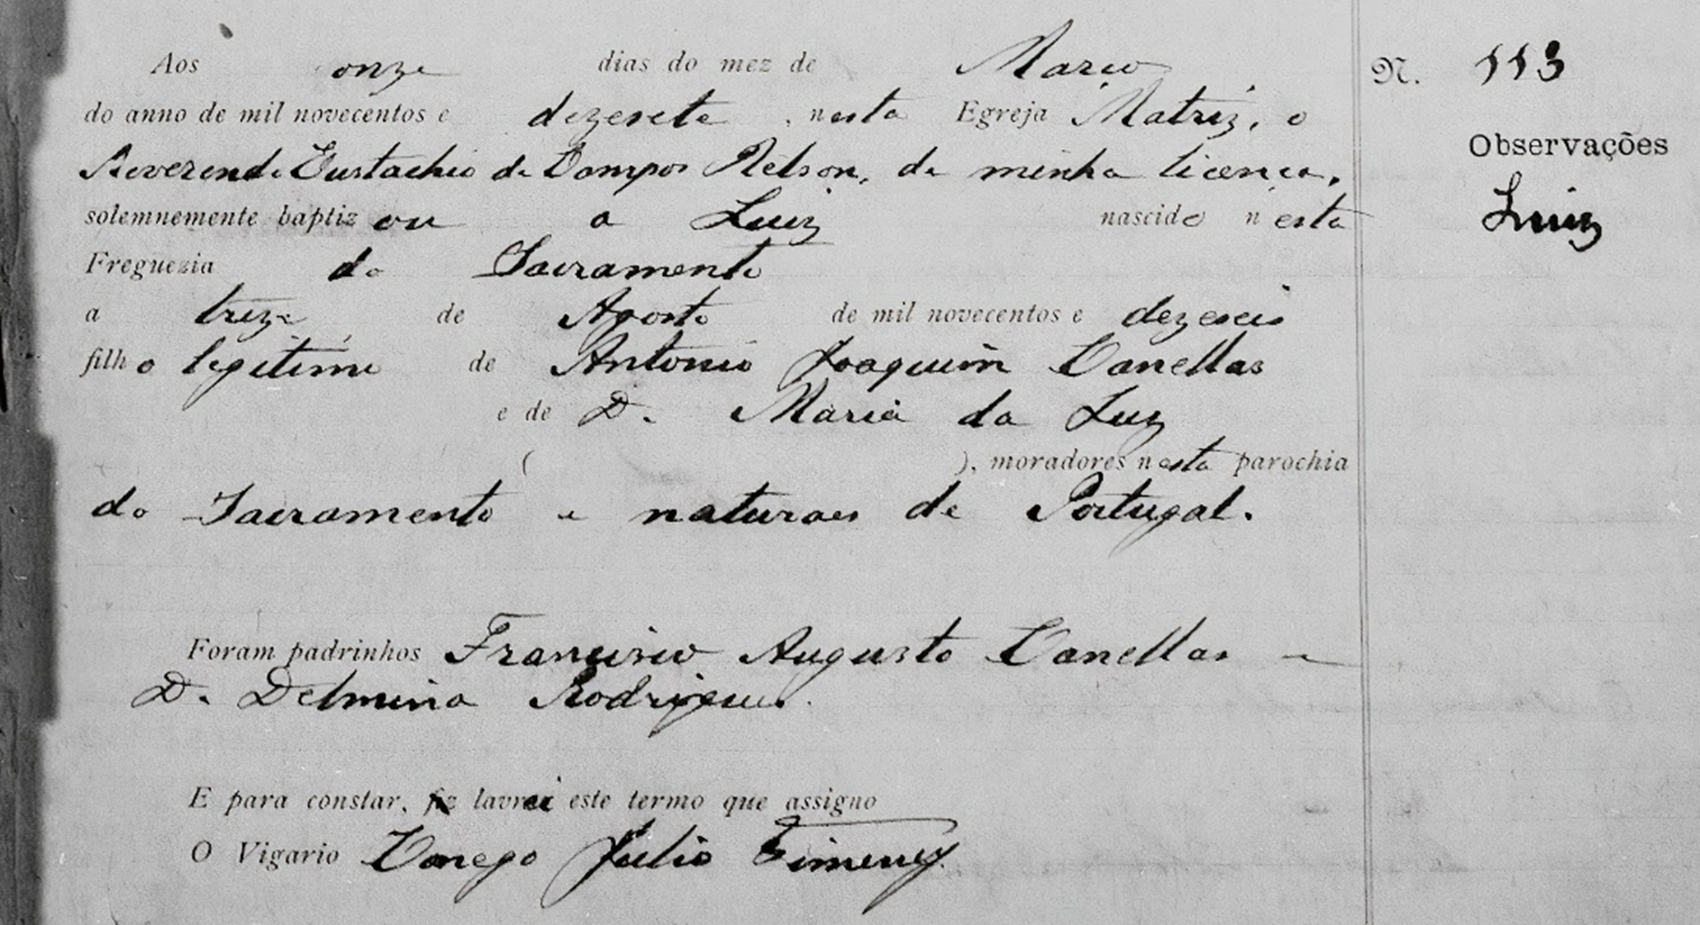 Aos onze dias do mez de Março N. 113
do anno de mil novecentos e dezesete, nesta Egreja Matriz, o
Observações
Reverendo Eustachio de Campos Nelson, de minha licença,
solemnemente baptizou a Luiz nascido nesta Luiz
Freguezia do Sacramento
a treze de Agosto de mil novecentos e dezeseis
filho legitimo de Antonio Joaquim Canellas
e de D. Maria da Luz
( ), moradores nesta parochia
do Sacramento e naturaes de Portugal.
Foram padrinhos Francisco Augusto Canellas e
D. Delmina Rodrigues.
E para constar, fiz lavrei este termo que assigno
O Vigario Conego Julio Gimenez